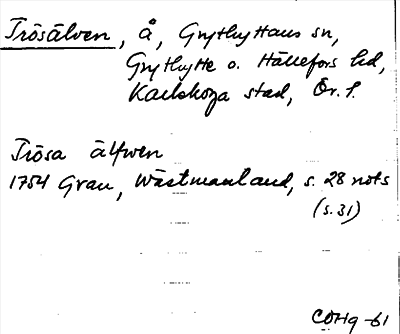 Trösälven, å, Grythyttans sn,
Grythytte o. Hällefors hd,
Karlskoga stad, Ör. l.
Trösa älfwen
1754 Grau, Wästmanland, s. 28 nots
(s. 31)
COHg -61